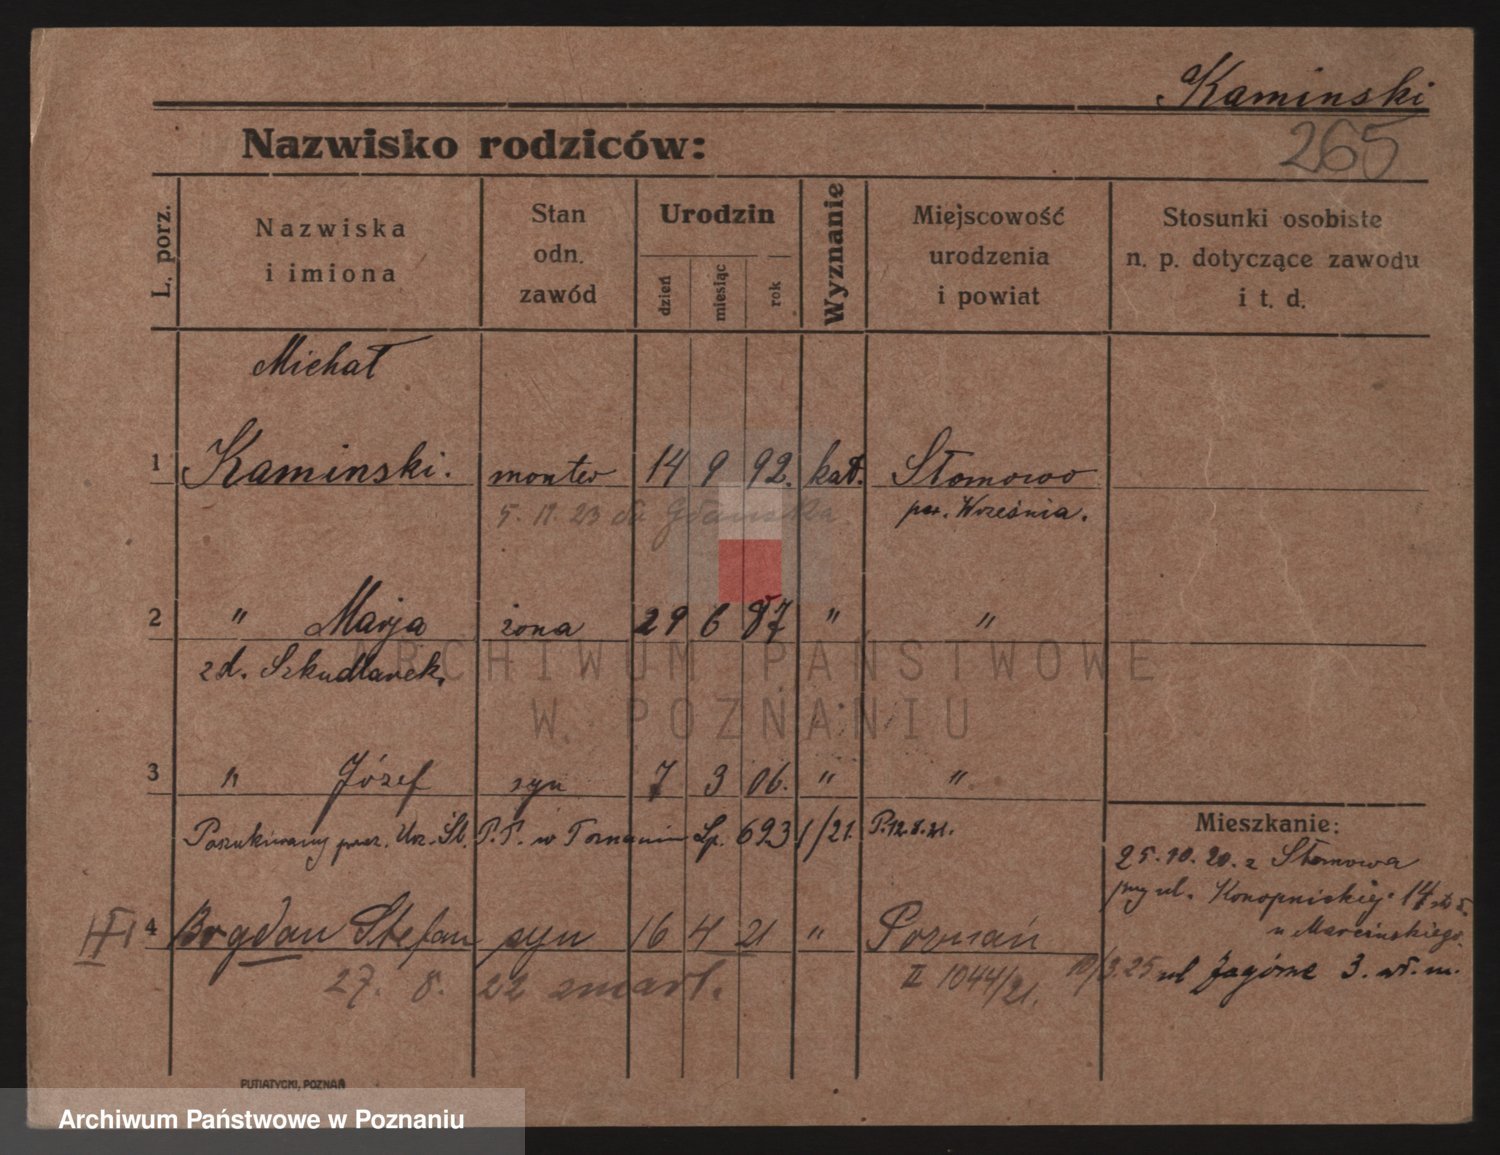 Kaminski
265
Nazwisko rodziców:
L. porz.
Nazwiska
i imiona
Stan
odn.
zawód
Urodzin
dzień
miesiąc
rok
Wyznanie
Miejscowość
urodzenia
i powiat
Stosunki osobiste
n. p. dotyczące zawodu
i t. d.
Michał
1 Kaminski. monter 14 9 92. kat. Słomowo
5. 11. 23 do Gdańska pow. Września.
2 " Marja żona 29 6 87 " "
zd. Szkudlarek.
ARCHIWUM PAŃSTWOWE
W POZNANIU
3 " Józef syn 7 3 06. " "
Poszukiwany przez Urz. Śl. P.P. w Poznaniu Lp. 693 1/21. P. 12.8.21.
Mieszkanie:
25.10.20. z Słomowa
przy ul. Konopnickiej 14
u Marcinskiego.
4 Bogdan Stefan syn 16 4 21 " Poznań
10/3.25 ul Zagórze 3. wł. m.
27. 8. 22 zmarł. II 1044/21.
PUTIATYCKI, POZNAŃ
Archiwum Państwowe w Poznaniu